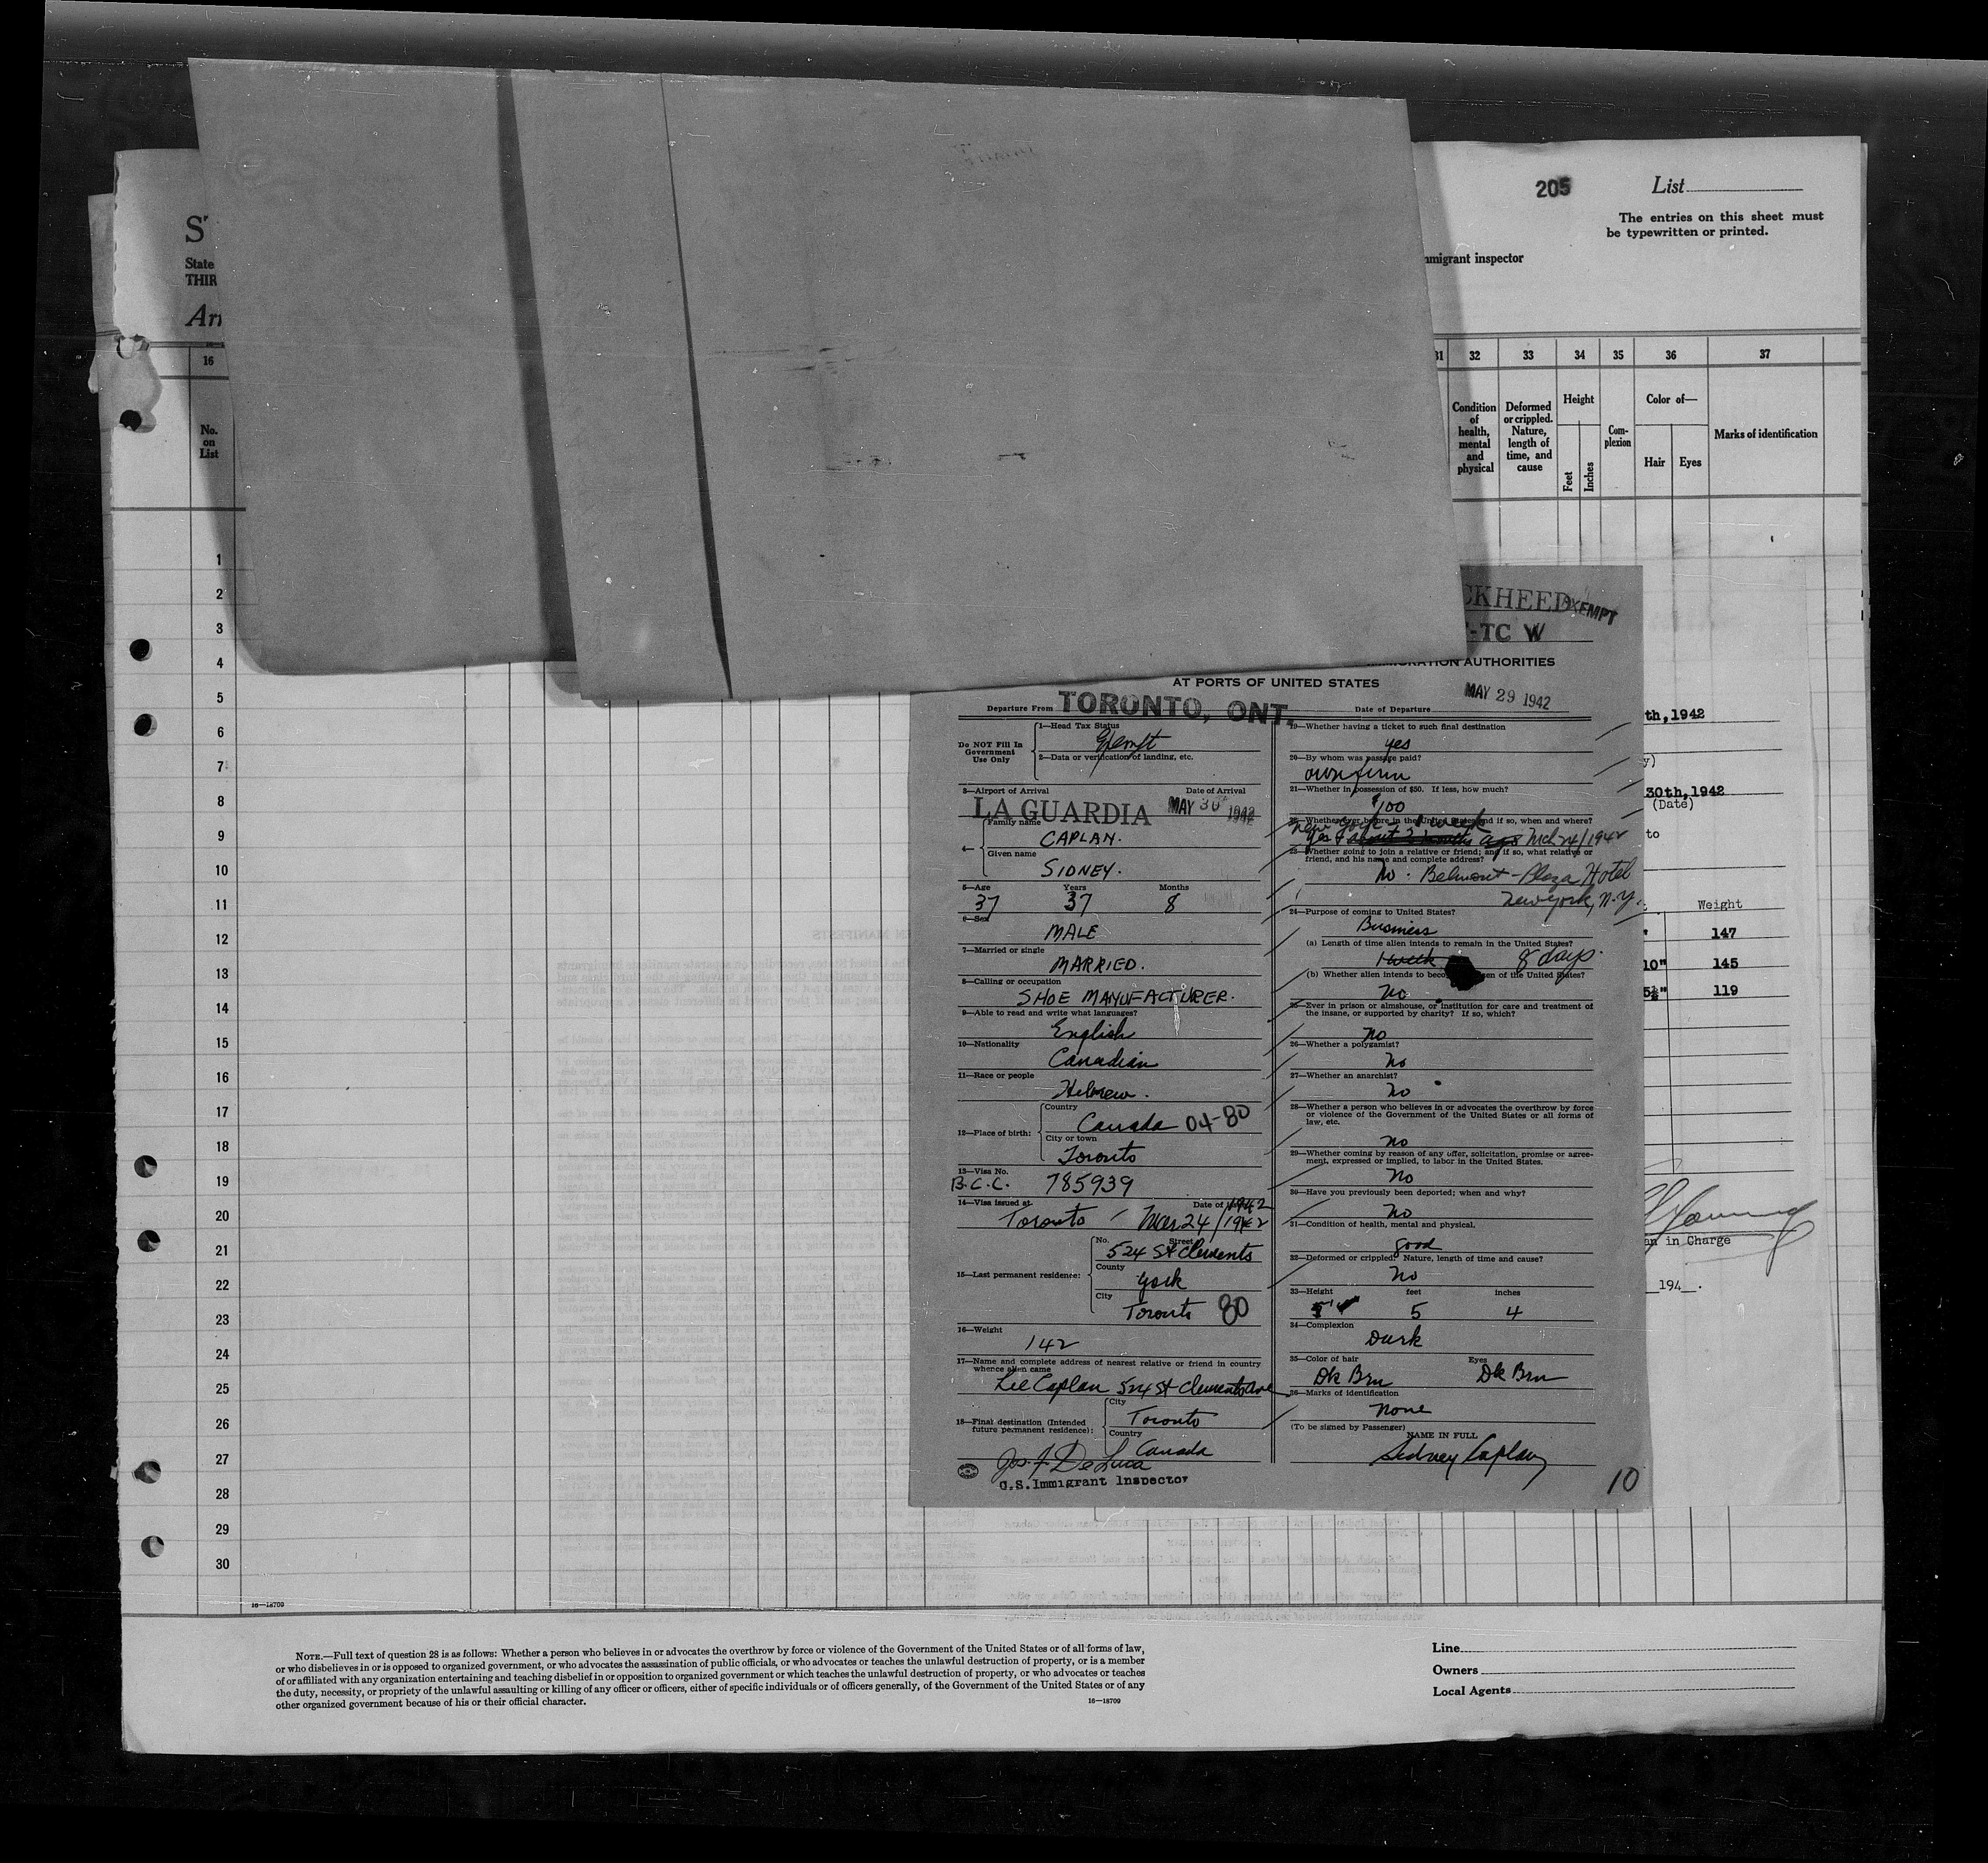 205
List
The entries on this sheet must
be typewritten or printed.
State
THIR
immigrant inspector
16
32 33 34 35 36 37
No.
on
List
Condition
of
health,
mental
and
physical
Deformed
or crippled.
Nature,
length of
time, and
cause
Height
Feet
Inches
Com-
plexion
Color of—
Hair
Eyes
Marks of identification
1
2
3
4
5
6
7
8
9
10
11
12
13
14
15
16
17
18
19
20
21
22
23
24
25
26
27
28
29
30
16—18709
CKHEED
EXEMPT
-TC W
AUTHORITIES
AT PORTS OF UNITED STATES
Departure From TORONTO, ONT.
Date of Departure MAY 29 1942
Do NOT Fill In
Government
Use Only
1—Head Tax Status
Exempt
2—Data or verification of landing, etc.
3—Airport of Arrival Date of Arrival
LA GUARDIA MAY 30 1942
Family name
CAPLAN.
4—
Given name
SIDNEY.
5—Age Years Months
37 37 8
6—Sex
MALE
7—Married or single
MARRIED.
8—Calling or occupation
SHOE MANUFACTURER.
9—Able to read and write what languages?
English
10—Nationality
Canadian
11—Race or people
Hebrew.
12—Place of birth:
Country
Canada 04-80
City or town
Toronto
13—Visa No.
B.C.C. 785939
14—Visa issued at Date of 1942
Toronto Mar 24/1942
15—Last permanent residence:
No. Street
524 St Clements
County
York
City
Toronto 80
16—Weight
142
17—Name and complete address of nearest relative or friend in country
whence alien came
Lee Caplan 524 St Clements Ave
18—Final destination (Intended
future permanent residence):
City
Toronto
Country
Canada
Jos. F. De Luca
U.S. Immigrant Inspector
19—Whether having a ticket to such final destination
yes
20—By whom was passage paid?
own firm
21—Whether in possession of $50. If less, how much?
$100
22—Whether ever before in the United States and if so, when and where?
New York - 1 week
Yes about 2 months ago Mch 24/1942
23—Whether going to join a relative or friend; and if so, what relative or
friend, and his name and complete address?
No. Belmont-Plaza Hotel
New York, N.Y.
24—Purpose of coming to United States?
Business
(a) Length of time alien intends to remain in the United States?
1 week 8 days.
(b) Whether alien intends to become citizen of the United States?
No
25—Ever in prison or almshouse, or institution for care and treatment of
the insane, or supported by charity? If so, which?
no
26—Whether a polygamist?
No
27—Whether an anarchist?
No
28—Whether a person who believes in or advocates the overthrow by force
or violence of the Government of the United States or all forms of
law, etc.
no
29—Whether coming by reason of any offer, solicitation, promise or agree-
ment, expressed or implied, to labor in the United States.
No
30—Have you previously been deported; when and why?
No
31—Condition of health, mental and physical.
good
32—Deformed or crippled? Nature, length of time and cause?
No
33—Height feet inches
5 4
34—Complexion
Dark
35—Color of hair Eyes
Dk Brn Dk Brn
36—Marks of identification
None
(To be signed by Passenger)
NAME IN FULL
Sidney Caplan
10
th, 1942
30th, 1942
(Date)
to
Weight
147
10" 145
5½" 119
in Charge
194 .
NOTE.—Full text of question 28 is as follows: Whether a person who believes in or advocates the overthrow by force or violence of the Government of the United States or of all forms of law,
or who disbelieves in or is opposed to organized government, or who advocates the assassination of public officials, or who advocates or teaches the unlawful destruction of property, or is a member
of or affiliated with any organization entertaining and teaching disbelief in or opposition to organized government or which teaches the unlawful destruction of property, or who advocates or teaches
the duty, necessity, or propriety of the unlawful assaulting or killing of any officer or officers, either of specific individuals or of officers generally, of the Government of the United States or of any
other organized government because of his or their official character.
16—18709
Line
Owners
Local Agents